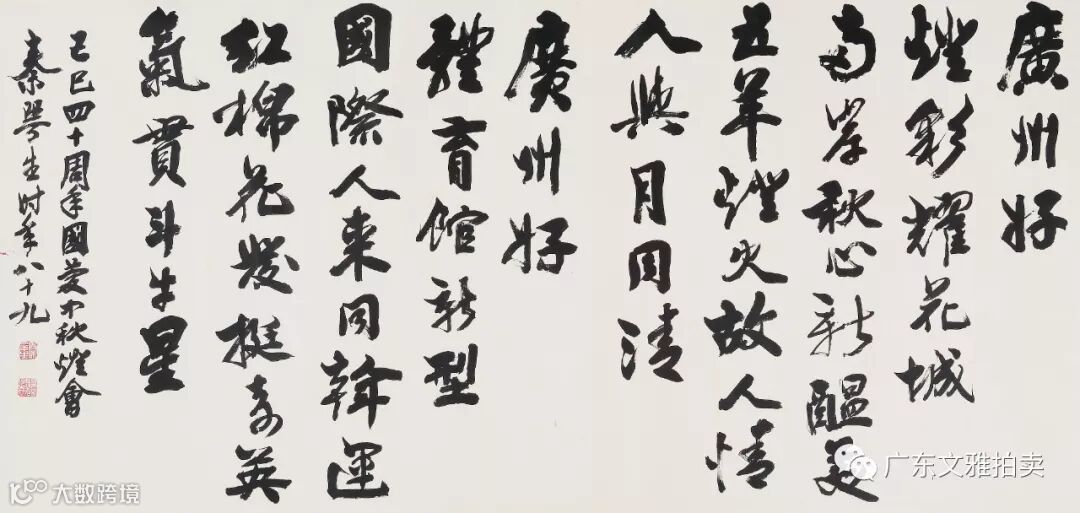 廣州好
燈彩耀花城
秋心新醖
五羊燈火故人情
人與月同清
廣州好
體育館新型
國際人來同運
紅棉花發挺奇英
氣貫斗牛星
己巳四十周年國慶中秋燈會
秦咢生时年八十九
广东文雅拍卖
大数跨境